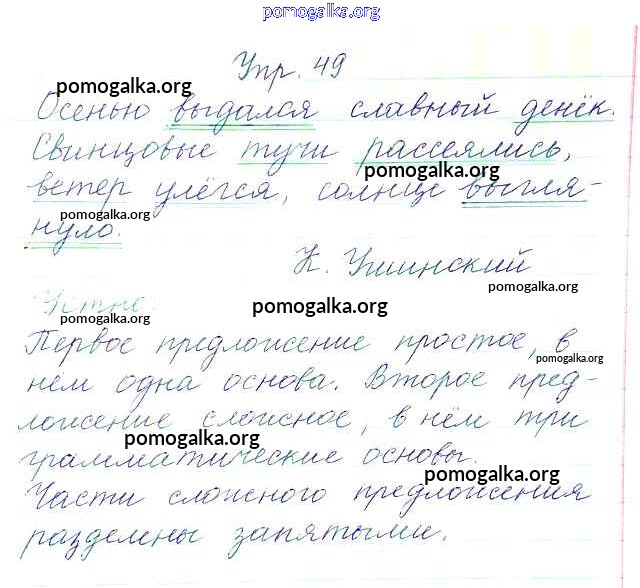 pomogalka.org
Упр. 49
pomogalka.org
Осенью выдался славный денёк.
pomogalka.org
Свинцовые тучи рассеялись,
pomogalka.org
ветер улёгся, солнце выгля-
pomogalka.org
нуло.
К. Ушинский
pomogalka.org
Устно:
pomogalka.org
pomogalka.org
Первое предложение простое, в
pomogalka.org
нём одна основа. Второе пред-
ложение сложное, в нём три
pomogalka.org
грамматические основы.
pomogalka.org
Части сложного предложения
разделены запятыми.